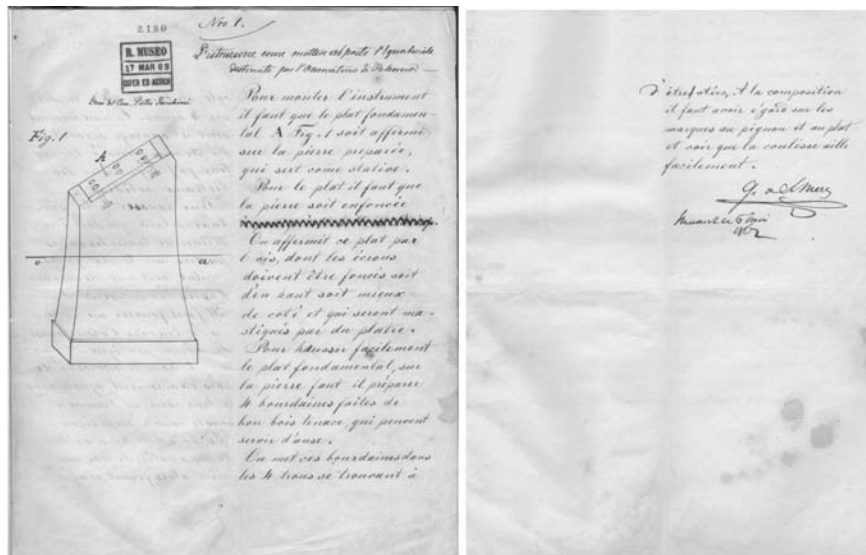 2190
Nro 1.
R. MUSEO
17 MAR 89
Istruzione come mettere al posto l'Equatoriale
destinato per l'Osservatorio di Palermo —
Dono del Com. Pietro Tacchini
Fig. 1
A
o
a
Pour monter l'instrument
il faut que le plat fondamen-
tal A Fig. 1 soit affermi
sur la pierre preparée,
qui sert come stative.
Pour le plat il faut que
la pierre soit enfoncée
On affermit ce plat par
6 ais, dont les écrous
doivent être foncés soit
d'en haut soit mieux
de coté et qui seront ma-
stiqués par du platre.
Pour hausser facilement
le plat fondamental, sur
la pierre faut il préparer
4 bourdaines faites de
bon bois tenace, qui peuvent
servir d'anse.
On met ces bourdaines dans
les 4 trous se trouvant à
A la composition
il faut avoir égard sur les
marques au pignon et au plat
et voir que la coulisse aille
facilement.
G. Merz
1862